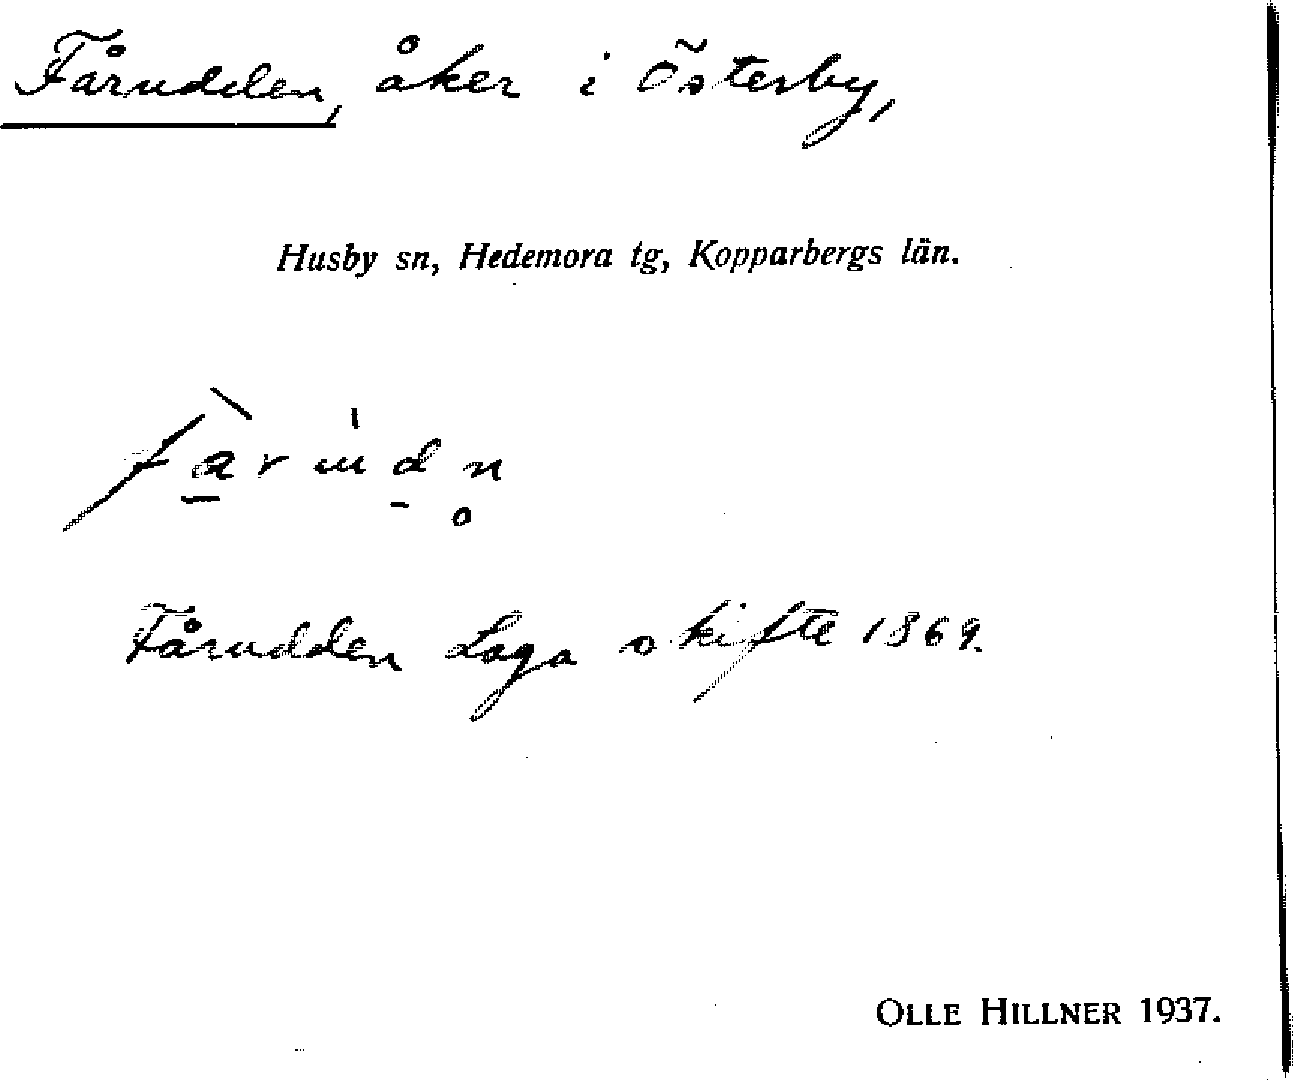 Fårudden, åker i Österby,
Husby sn, Hedemora tg, Kopparbergs län.
Fårudden Laga skifte 1869.
OLLE HILLNER 1937.